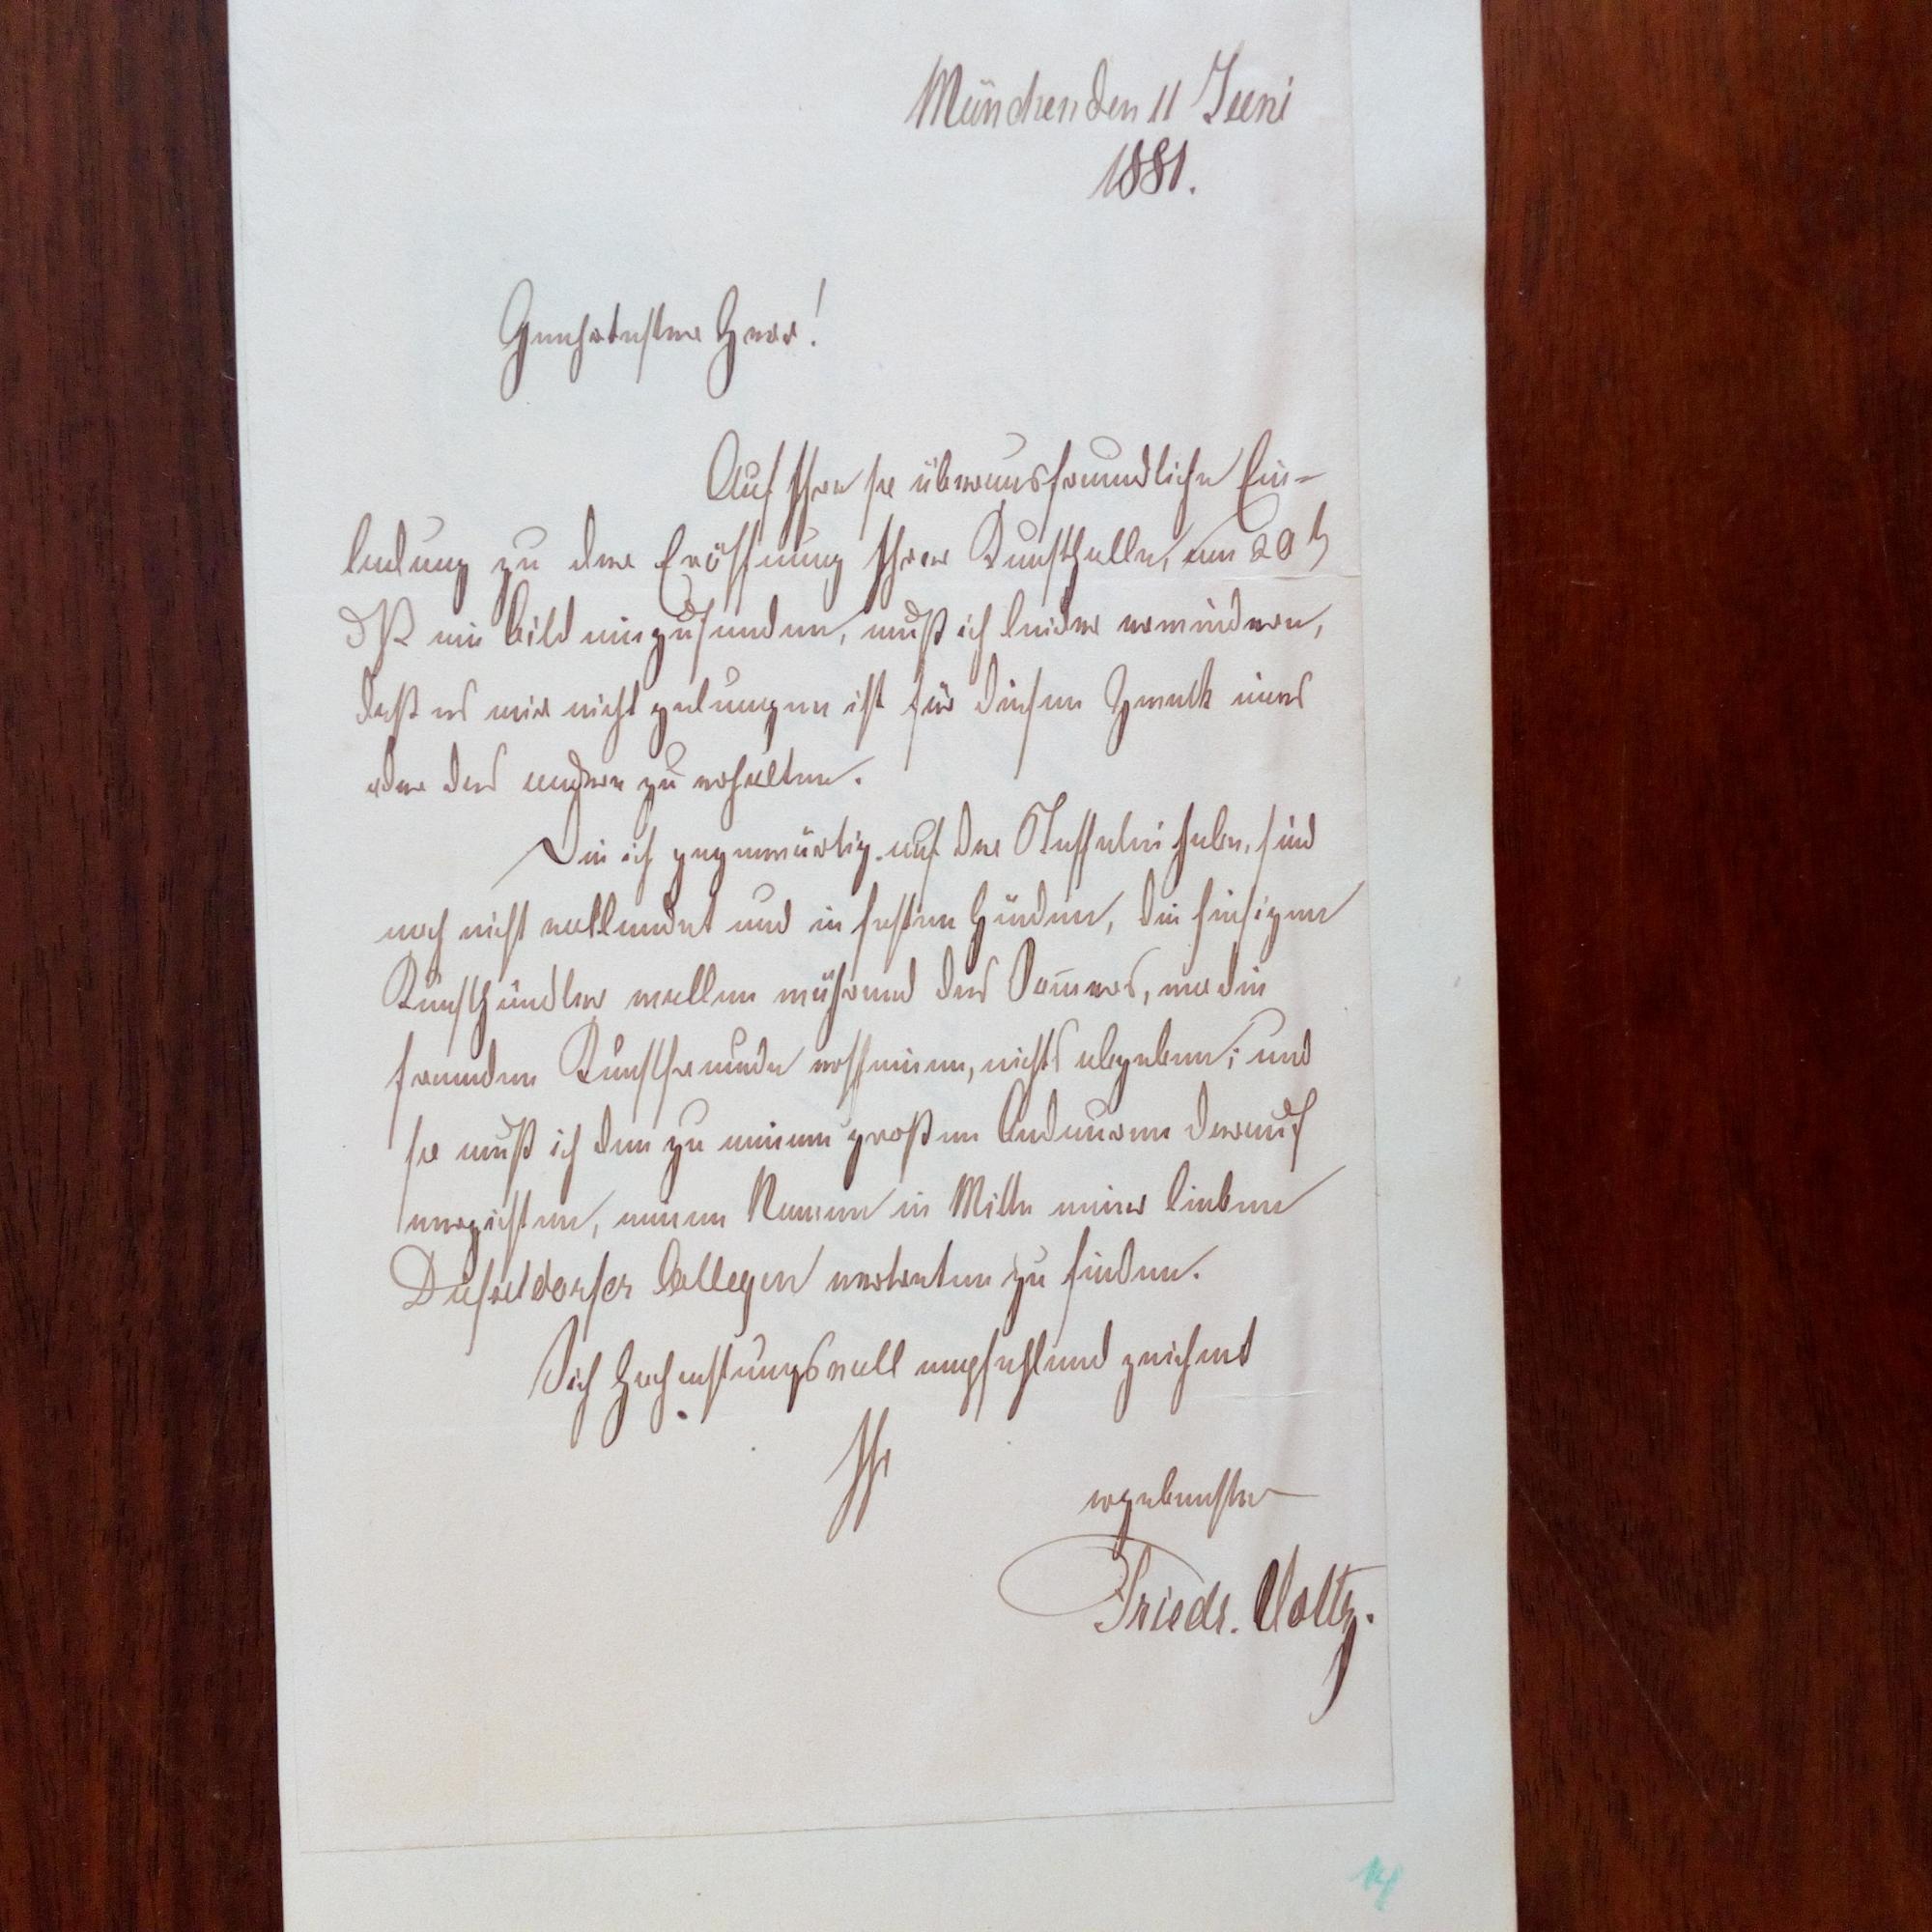 München den 11 Juni
1881.
Geehrtester Herr!
Auf Ihre so überausfreundliche Ein-
ladung zu der Eröffnung Ihrer Kunsthalle, am 20t
ds ein Bild einzusenden, muß ich leider erwiedern,
daß es mir nicht gelungen ist für diesen Zweck eines
oder das andere zu erhalten.
Die ich gegenwärtig auf der Staffelei habe, sind
noch nicht vollendet und in festen Händen, die hiesigen
Kunsthändler wollen während des Sommers, wo die
fremden Kunstfreunde erscheinen, nichts abgeben; und
so muß ich den zu meinem großen Bedauern darauf
verzichten, meinen Namen in Mitte meiner lieben
Düsseldorfer Collegen vertreten zu finden.
Sich Hochachtungsvoll empfehlend zeichnet
Ihr
ergebenster
Friedr. Voltz.
14